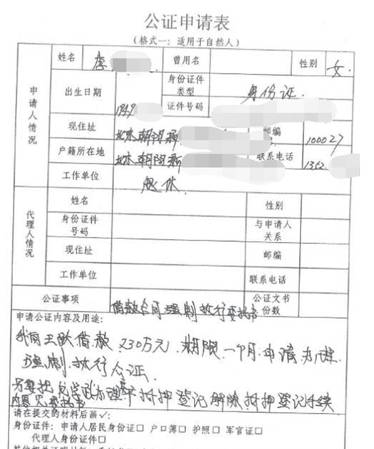 公证申请表
(格式一：适用于自然人)
申请人情况
姓名 李 曾用名 性别 女
出生日期 1949 身份证件类型 身份证
证件号码
现住址 北京朝阳新 邮编 100027
户籍所在地 北京朝阳新 联系电话 1362
工作单位 退休
代理人情况
姓名 性别
身份证件号码 与申请人关系
现住址 邮编
工作单位 联系电话
公证事项 借款合同 强制执行 委托书 公证文书份数
申请公证内容及用途：
我向王 借款 230万元 期限一个月 申请办理
强制执行公证.
另委托 办理 抵押登记 解除抵押登记手续
请在提交的材料后画√：
身份证件：申请人居民身份证□ 户口簿□ 护照□ 军官证□
代理人身份证件□